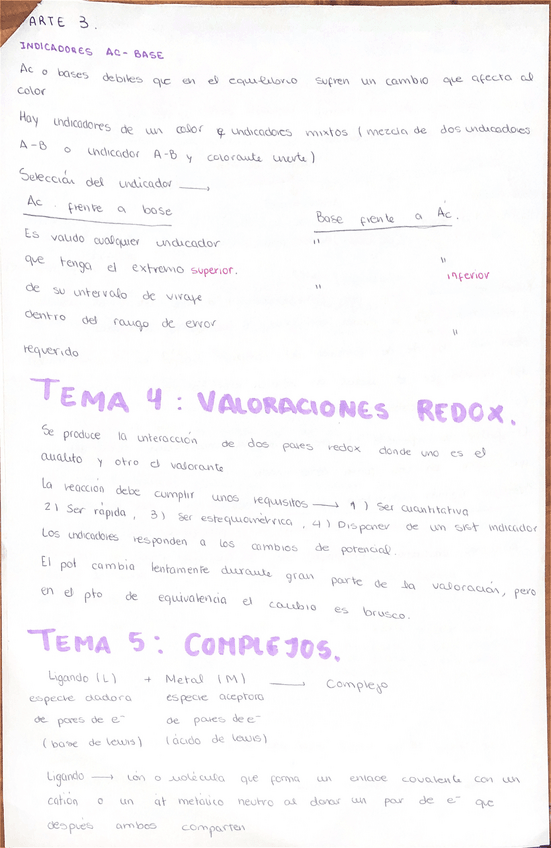 PARTE 3.
INDICADORES AC-BASE
Ac o bases debiles que en el equilibrio sufren un cambio que afecta al
color
Hay indicadores de un color e indicadores mixtos (mezcla de dos indicadores
A-B o indicador A-B y colorante inerte)
Selección del indicador →
Ac. frente a base
Base frente a Ac.
Es valido cualquier indicador "
que tenga el extremo superior. " inferior
de su intervalo de viraje "
dentro del rango de error "
requerido
TEMA 4: VALORACIONES REDOX.
Se produce la interacción de dos pares redox donde uno es el
analito y otro el valorante
La reacción debe cumplir unos requisitos → 1) Ser cuantitativa
2) Ser rápida, 3) Ser estequiométrica, 4) Disponer de un sist indicador
Los indicadores responden a los cambios de potencial.
El pot cambia lentamente durante gran parte de la valoración, pero
en el pto de equivalencia el cambio es brusco.
TEMA 5: COMPLEJOS.
Ligando (L) + Metal (M) → Complejo
especie dadora especie aceptora
de pares de e⁻ de pares de e⁻
(base de lewis) (ácido de lewis)
Ligando → ión o molécula que forma un enlace covalente con un
catión o un at metálico neutro al donar un par de e⁻ que
después ambos comparten